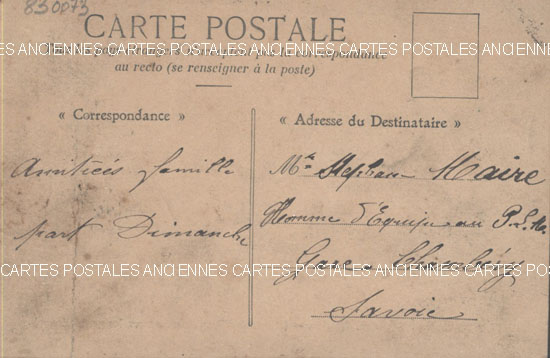 830073
CARTE POSTALE
CARTES POSTALES ANCIENNES CARTES POSTALES ANCIENNES CARTES POSTALES ANCIENNES
au recto (se renseigner à la poste)
« Correspondance »
« Adresse du Destinataire »
Amitiées famille
part Dimanche
Mr Stephane Maire
Homme d'Equipe au P.L.M.
Gare Chambéry
CARTES POSTALES ANCIENNES CARTES POSTALES ANCIENNES CARTES POSTALES ANCIENNES
Savoie